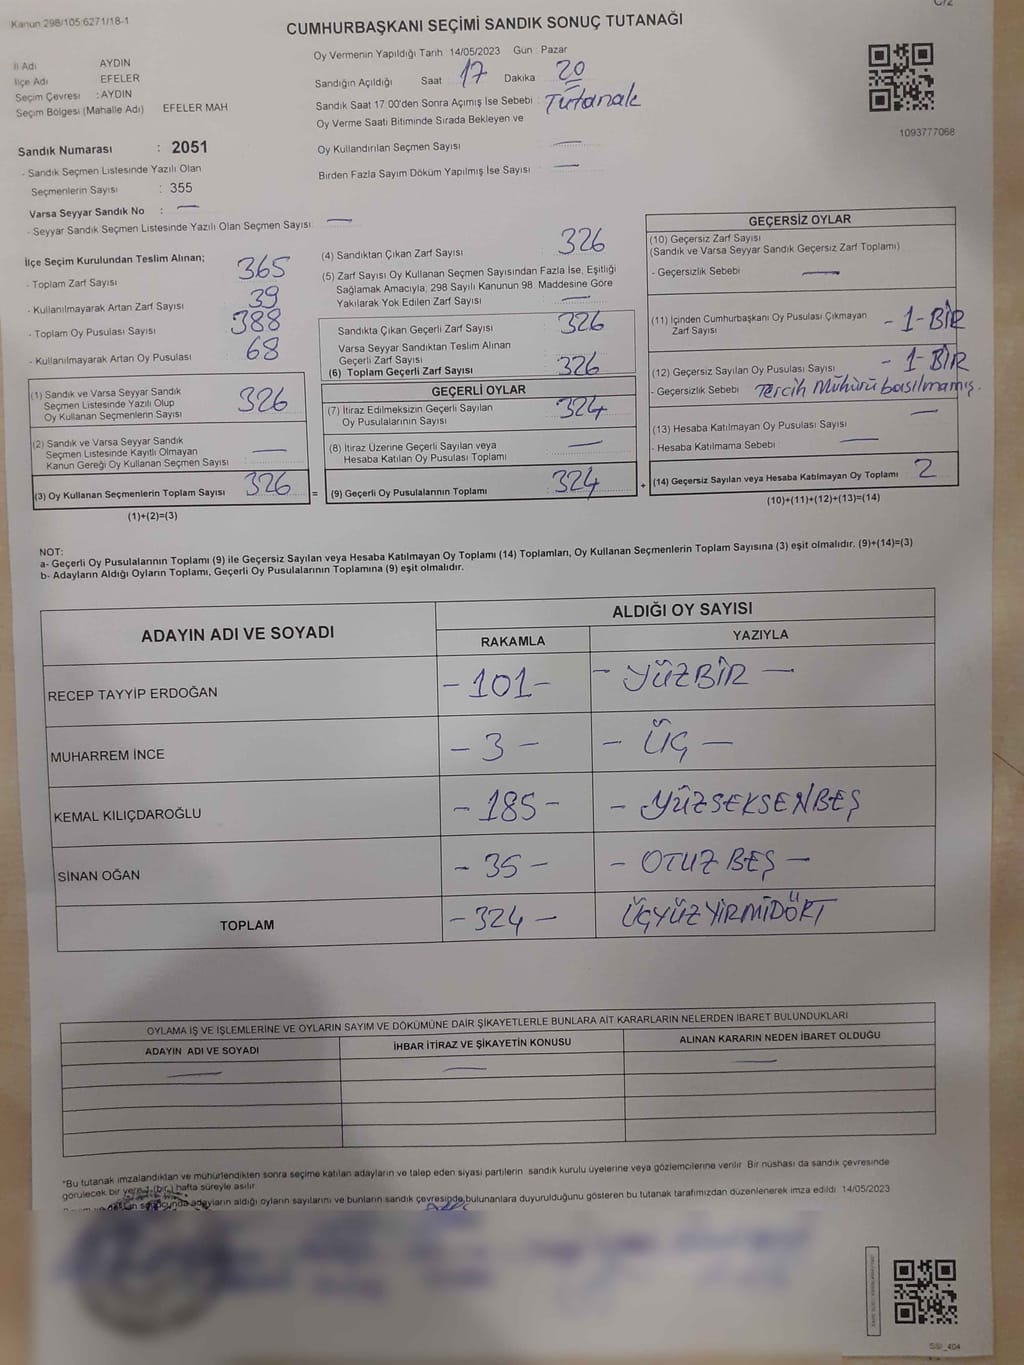 Kanun 298/105:6271/18-1
C/2
CUMHURBAŞKANI SEÇİMİ SANDIK SONUÇ TUTANAĞI
İl Adı AYDIN
İlçe Adı EFELER
Seçim Çevresi : AYDIN
Seçim Bölgesi (Mahalle Adı) EFELER MAH
Oy Vermenin Yapıldığı Tarih 14/05/2023 Gün Pazar
Sandığın Açıldığı Saat 17 Dakika 20
Sandık Saat 17:00'den Sonra Açımış İse Sebebi : Tutanak
Oy Verme Saati Bitiminde Sırada Bekleyen ve
Oy Kullandırılan Seçmen Sayısı —
Birden Fazla Sayım Döküm Yapılmış İse Sayısı —
1093777068
Sandık Numarası : 2051
- Sandık Seçmen Listesinde Yazılı Olan
Seçmenlerin Sayısı : 355
Varsa Seyyar Sandık No : —
- Seyyar Sandık Seçmen Listesinde Yazılı Olan Seçmen Sayısı: —
İlçe Seçim Kurulundan Teslim Alınan;
- Toplam Zarf Sayısı 365
- Kullanılmayarak Artan Zarf Sayısı 39
- Toplam Oy Pusulası Sayısı 388
- Kullanılmayarak Artan Oy Pusulası 68
(1) Sandık ve Varsa Seyyar Sandık
Seçmen Listesinde Yazılı Olup
Oy Kullanan Seçmenlerin Sayısı 326
(2) Sandık ve Varsa Seyyar Sandık
Seçmen Listesinde Kayıtlı Olmayan
Kanun Gereği Oy Kullanan Seçmen Sayısı —
(3) Oy Kullanan Seçmenlerin Toplam Sayısı 326 =
(1)+(2)=(3)
(4) Sandıktan Çıkan Zarf Sayısı 326
(5) Zarf Sayısı Oy Kullanan Seçmen Sayısından Fazla İse, Eşitliği
Sağlamak Amacıyla; 298 Sayılı Kanunun 98. Maddesine Göre
Yakılarak Yok Edilen Zarf Sayısı —
Sandıkta Çıkan Geçerli Zarf Sayısı 326
Varsa Seyyar Sandıktan Teslim Alınan
Geçerli Zarf Sayısı
(6) Toplam Geçerli Zarf Sayısı 326
GEÇERLİ OYLAR
(7) İtiraz Edilmeksizin Geçerli Sayılan
Oy Pusulalarının Sayısı 324
(8) İtiraz Üzerine Geçerli Sayılan veya
Hesaba Katılan Oy Pusulası Toplamı —
(9) Geçerli Oy Pusulalarının Toplamı 324 +
GEÇERSİZ OYLAR
(10) Geçersiz Zarf Sayısı
(Sandık ve Varsa Seyyar Sandık Geçersiz Zarf Toplamı)
- Geçersizlik Sebebi —
(11) İçinden Cumhurbaşkanı Oy Pusulası Çıkmayan
Zarf Sayısı - 1-BİR
(12) Geçersiz Sayılan Oy Pusulası Sayısı - 1-BİR
- Geçersizlik Sebebi Tercih Mühürü basılmamış.
(13) Hesaba Katılmayan Oy Pusulası Sayısı —
- Hesaba Katılmama Sebebi —
(14) Geçersiz Sayılan veya Hesaba Katılmayan Oy Toplamı 2
(10)+(11)+(12)+(13)=(14)
NOT:
a- Geçerli Oy Pusulalarının Toplamı (9) ile Geçersiz Sayılan veya Hesaba Katılmayan Oy Toplamı (14) Toplamları, Oy Kullanan Seçmenlerin Toplam Sayısına (3) eşit olmalıdır. (9)+(14)=(3)
b- Adayların Aldığı Oyların Toplamı, Geçerli Oy Pusulalarının Toplamına (9) eşit olmalıdır.
ADAYIN ADI VE SOYADI ALDIĞI OY SAYISI
RAKAMLA YAZIYLA
RECEP TAYYİP ERDOĞAN - 101 - - YÜZBİR -
MUHARREM İNCE - 3 - - ÜÇ -
KEMAL KILIÇDAROĞLU - 185 - - YÜZSEKSENBEŞ
SİNAN OĞAN - 35 - - OTUZ BEŞ -
TOPLAM - 324 - ÜÇYÜZYİRMİDÖRT
OYLAMA İŞ VE İŞLEMLERİNE VE OYLARIN SAYIM VE DÖKÜMÜNE DAİR ŞİKAYETLERLE BUNLARA AİT KARARLARIN NELERDEN İBARET BULUNDUKLARI
ADAYIN ADI VE SOYADI İHBAR İTİRAZ VE ŞİKAYETİN KONUSU ALINAN KARARIN NEDEN İBARET OLDUĞU
— — —
*Bu tutanak imzalandıktan ve mühürlendikten sonra seçime katılan adayların ve talep eden siyasi partilerin sandık kurulu üyelerine veya gözlemcilerine verilir. Bir nüshası da sandık çevresinde
görülecek bir yere 1 (bir) hafta süreyle asılır.
adayların aldığı oyların sayılarını ve bunların sandık çevresinde bulunanlara duyurulduğunu gösteren bu tutanak tarafımızdan düzenlenerek imza edildi. 14/05/2023
SSI_404